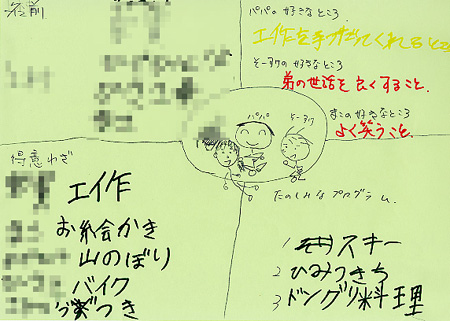 名前
パパの好きなところ.
工作を手伝ってくれるところ
そーすけの好きなところ
弟の世話を良くすること.
まこの好きなところ
よく笑うこと.
パパ
得意わざ
工作
お絵会かき
山のぼり
バイク
つき
たのしみなプログラム.
1 スキー
2 ひみつきち
3 ドングリ料理